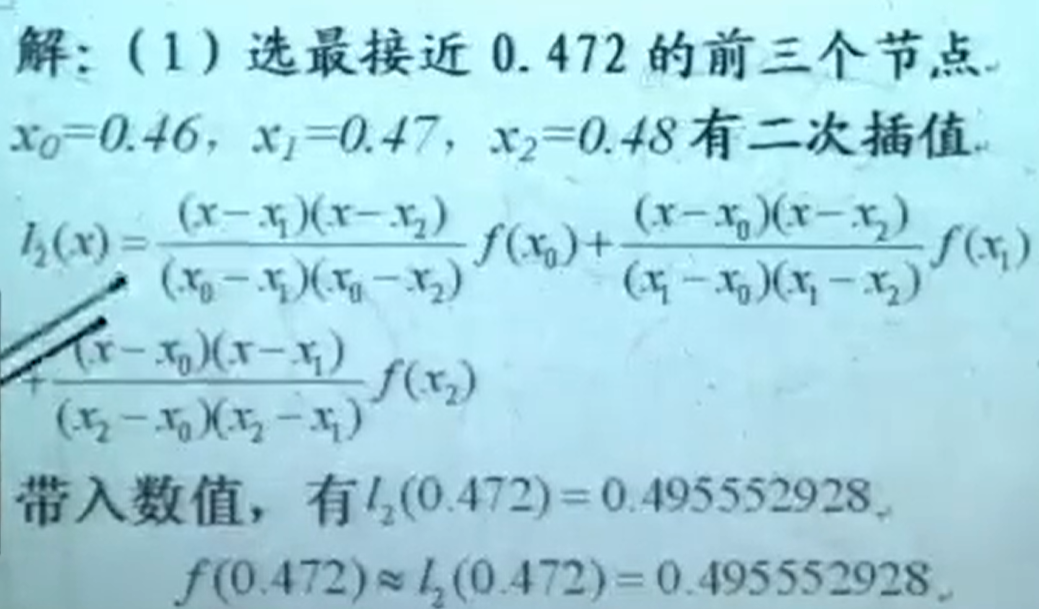 解:(1)选最接近 0.472 的前三个节点
x₀=0.46, x₁=0.47, x₂=0.48 有二次插值
l₂(x)=\frac{(x-x₁)(x-x₂)}{(x₀-x₁)(x₀-x₂)}f(x₀)+\frac{(x-x₀)(x-x₂)}{(x₁-x₀)(x₁-x₂)}f(x₁)
+\frac{(x-x₀)(x-x₁)}{(x₂-x₀)(x₂-x₁)}f(x₂)
带入数值,有l₂(0.472)=0.495552928。
f(0.472)≈l₂(0.472)=0.495552928。